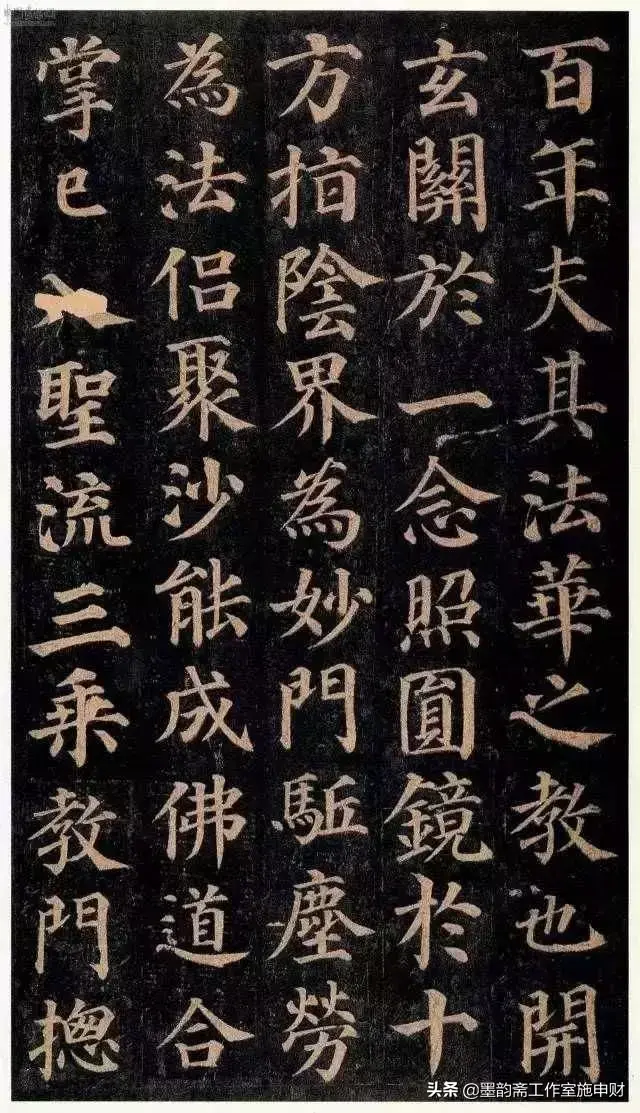 百年夫其法華之教也開
玄關於一念照圎鏡於十
方指陰界為妙門駈塵勞
為法侣聚沙能成佛道合
掌已入聖流三乗教門揔
头条 @墨韵斋工作室施申财